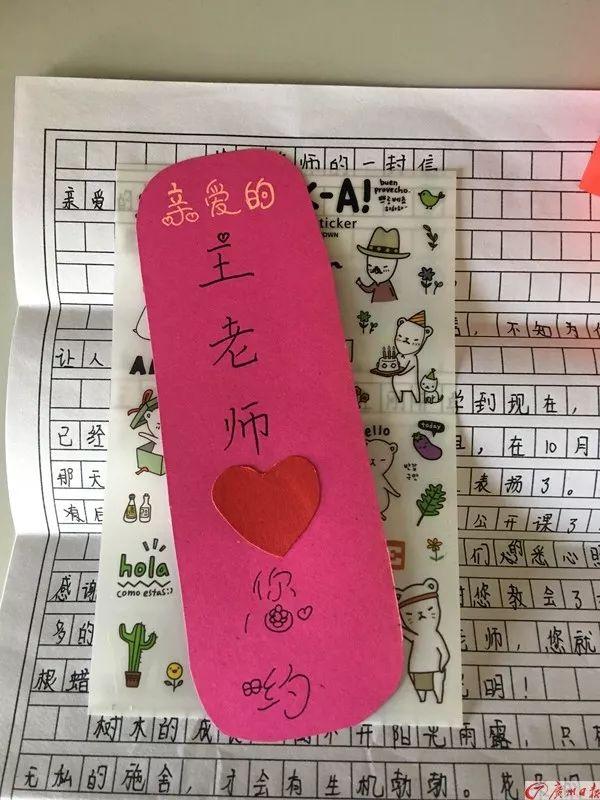 师的一封信
亲爱
不知为
让人
到现在，
已经 ，在10月
那天 表扬了。
有后 公开课了
们您的悉心
感谢 您教会了
多的 师，您就
根蜡 明！
树木的成 不开阳光雨露，只
无私的施舍，才会有生机勃勃。花
亲爱的
王
老
师
您
约
K-A!
buen
provecho.
sticker
ello
today
hola
como estas:)
广州日报